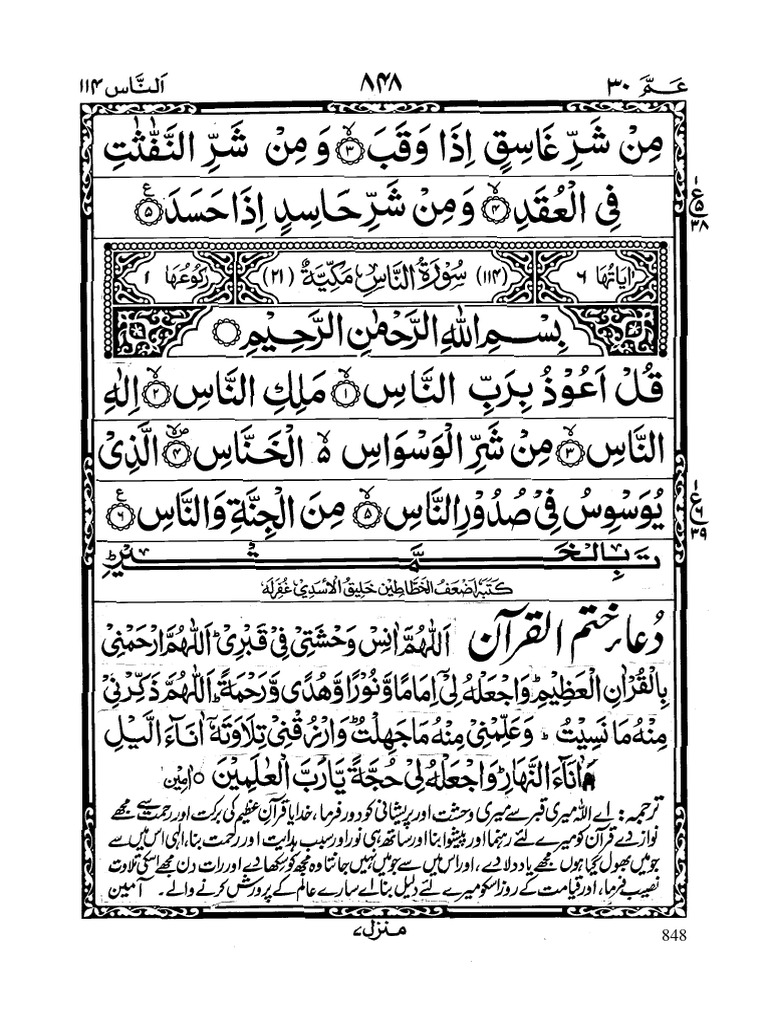 اَلنَّاس ۱۱۴ ۸۴۸ عَـمَّ ۳۰
مِنْ شَرِّ غَاسِقٍ اِذَا وَقَبَ ۙ﴿۳﴾ وَ مِنْ شَرِّ النَّفّٰثٰتِ
فِی الْعُقَدِ ۙ﴿۴﴾ وَ مِنْ شَرِّ حَاسِدٍ اِذَا حَسَدَ ﴿۵﴾
ع ۵ ۳۸
اٰیَاتُهَا ۶ (۱۱۴) سُوْرَةُ النَّاسِ مَكِّیَّةٌ (۲۱) رُكُوْعُهَا ۱
بِسْمِ اللّٰهِ الرَّحْمٰنِ الرَّحِیْمِ
قُلْ اَعُوْذُ بِرَبِّ النَّاسِ ۙ﴿۱﴾ مَلِكِ النَّاسِ ۙ﴿۲﴾ اِلٰهِ
النَّاسِ ۙ﴿۳﴾ مِنْ شَرِّ الْوَسْوَاسِ ۙ۬ الْخَنَّاسِ ۪ۙ﴿۴﴾ الَّذِیْ
یُوَسْوِسُ فِیْ صُدُوْرِ النَّاسِ ۙ﴿۵﴾ مِنَ الْجِنَّةِ وَ النَّاسِ ﴿۶﴾
ع ۶ ۳۹
تَمَّت بِالْخَیْر
كَتَبَهٗ اَضْعَفُ الْخَطَّاطِیْن خَلِیْقُ الْاَسْدِیْ غُفِرَ لَهٗ
دُعَاء ختم القرآن اَللّٰهُمَّ اٰنِسْ وَحْشَتِیْ فِیْ قَبْرِیْ ط اَللّٰهُمَّ ارْحَمْنِیْ
بِالْقُرْاٰنِ الْعَظِیْمِ ط وَاجْعَلْهُ لِیْ اِمَامًا وَّ نُوْرًا وَّ هُدًی وَّ رَحْمَةً ط اَللّٰهُمَّ ذَكِّرْنِیْ
مِنْهُ مَا نَسِیْتُ ط وَ عَلِّمْنِیْ مِنْهُ مَا جَهِلْتُ ط وَارْزُقْنِیْ تِلَاوَتَهٗ اٰنَآءَ الَّیْلِ
وَاٰنَآءَ النَّهَارِ ط وَاجْعَلْهُ لِیْ حُجَّةً یَّا رَبَّ الْعٰلَمِیْنَ ○ اٰمین
ترجمہ: اے اللہ میری قبر سے میری وحشت اور پریشانی کو دور فرما، خدایا قرآن عظیم کی برکت اور رحمت سے مجھے
نواز دے قرآن کو میرے لئے رہنما اور پیشوا بنا اور ساتھ ہی نور اور سبب ہدایت اور رحمت بنا، الٰہی اس میں سے
جو میں بھول گیا ہوں مجھے یاد دلا دے، اور اس میں سے جو میں نہیں جانتا وہ مجھ کو سکھا دے اور رات دن مجھے اسکی تلاوت
نصیب فرما، اور قیامت کے روز اسکو میرے لئے دلیل بنا اے سارے عالم کے پرورش کرنے والے۔ آمین
منزل ۷
848